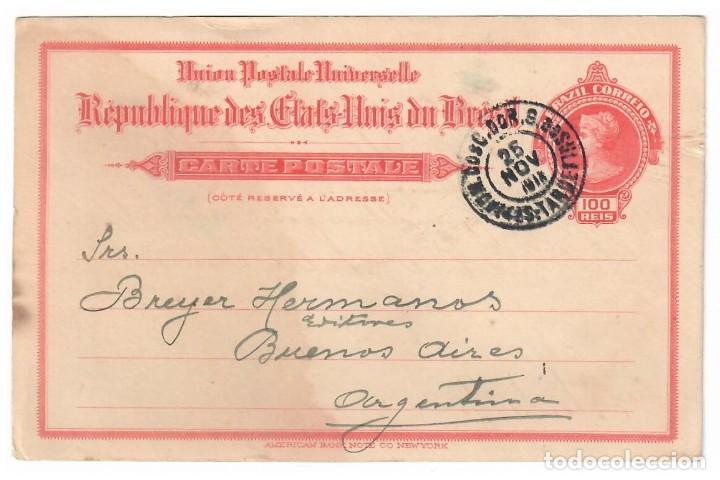 Union Postale Universelle
République des Etats-Unis du
CARTE POSTALE
(CÔTÉ RESERVÉ A L'ADRESSE)
BRAZIL CORREIO
100
REIS
25
NOV
Srs.
Breyer Hermanos
Editores
Buenos Aires
Argentina
AMERICAN BANK NOTE CO NEW YORK
todocoleccion.net